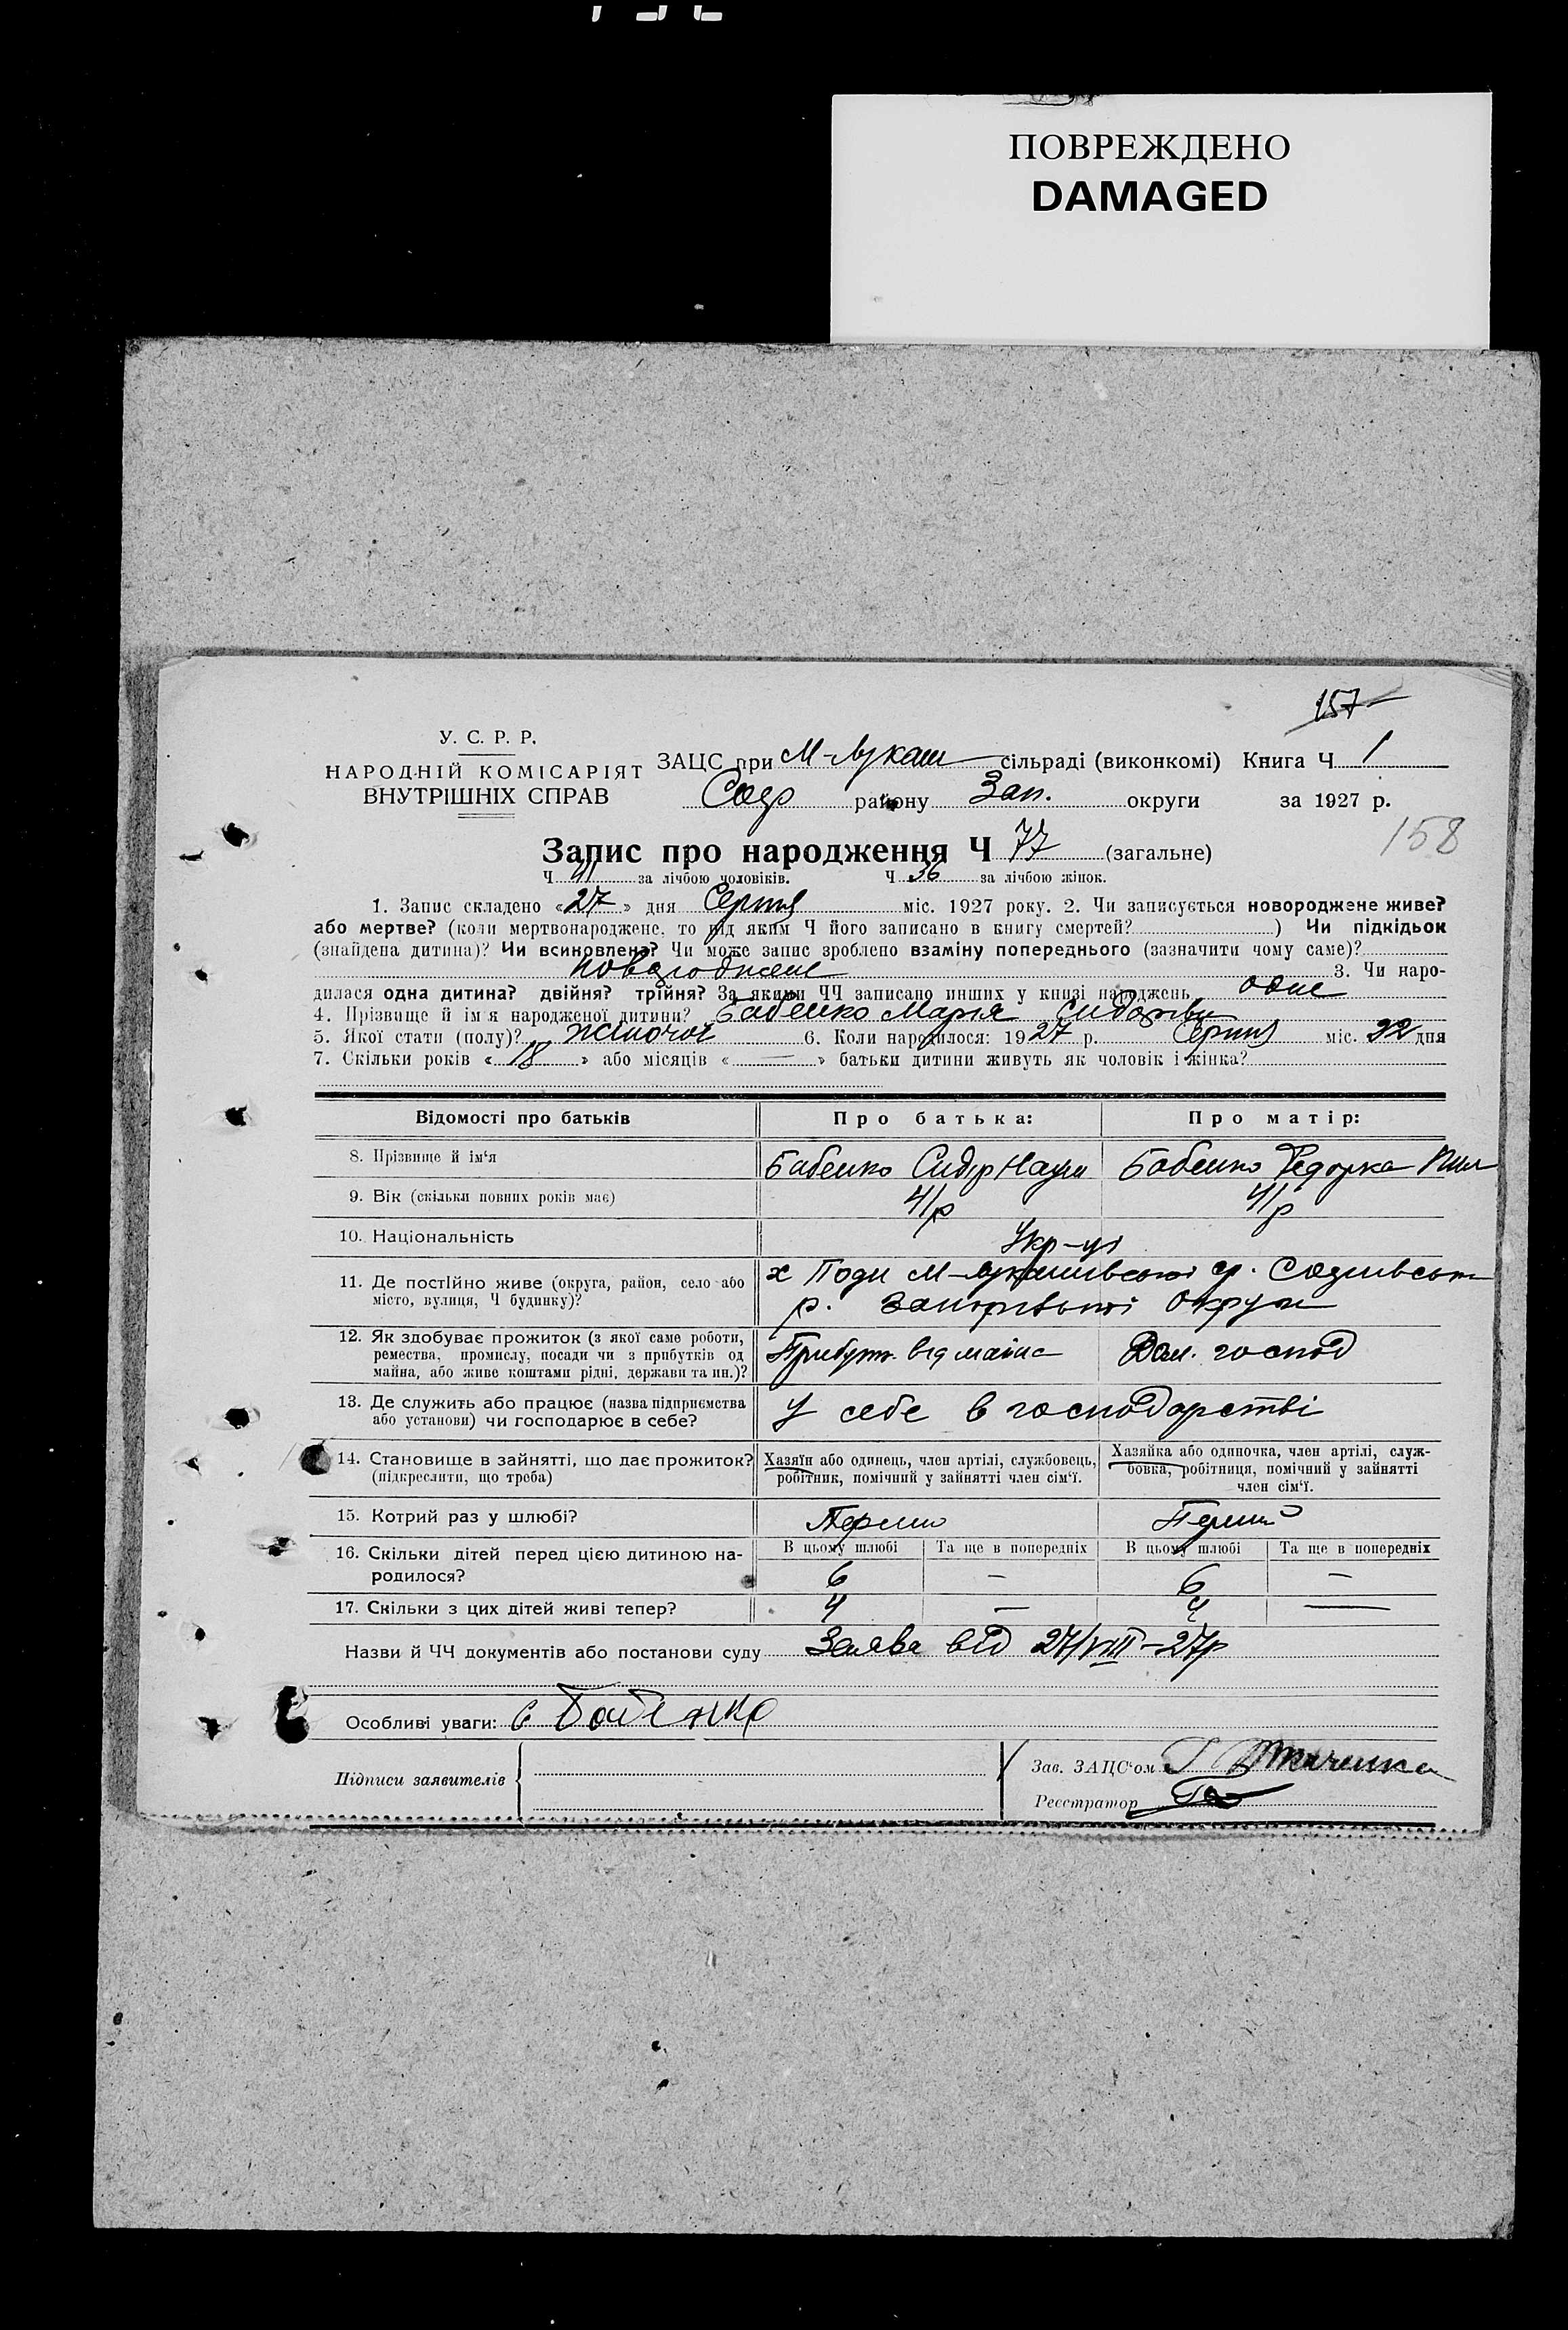 ПОВРЕЖДЕНО
DAMAGED
157
У. С. Р. Р.
НАРОДНІЙ КОМІСАРІЯТ
ВНУТРІШНІХ СПРАВ
ЗАЦС при М-Лукаш сільраді (виконкомі) Книга Ч 1
району Зап. округи за 1927 р.
158
Запис про народження Ч 77 (загальне)
Ч 41 за лічбою чоловіків. Ч 36 за лічбою жінок.
1. Запис складено «27» дня Серпня міс. 1927 року. 2. Чи записується новороджене живе?
або мертве? (коли мертвонароджене, то під яким Ч його записано в книгу смертей? ) Чи підкідьок
(знайдена дитина)? Чи всиновлена? Чи може запис зроблено взаміну попереднього (зазначити чому саме)?
новороджене 3. Чи наро-
дилася одна дитина? двійня? трійня? За якими ЧЧ записано инших у книзі народжень одне
4. Прізвище й ім'я народженої дитини? Бабенко Марія Сидорівн
5. Якої стати (полу)? жіночої 6. Коли народилося: 1927 р. Серпня міс. 22 дня
7. Скільки років «18» або місяців «—» батьки дитини живуть як чоловік і жінка?
Відомості про батьків Про батька: Про матір:
8. Прізвище й ім'я Бабенко Сидір Наум Бабенко Федорка Пил
9. Вік (скільки повних років має) 41 р 41 р
10. Національність Укр-ці
11. Де постійно живе (округа, район, село або
місто, вулиця, Ч будинку)?
х Поди М-Лукашівської
р. Запорізької Округи
12. Як здобуває прожиток (з якої саме роботи,
ремества, промислу, посади чи з прибутків од
майна, або живе коштами рідні, держави та ин.)?
Прибутк. від майна Дом. господ
13. Де служить або працює (назва підприємства
або установи) чи господарює в себе?
У себе в господарстві
14. Становище в зайнятті, що дає прожиток?
(підкреслити, що треба)
Хазяїн або одинець, член артілі, службовець,
робітник, помічний у зайнятті член сім'ї.
Хазяйка або одиночка, член артілі, служ-
бовка, робітниця, помічний у зайнятті
член сім'ї.
15. Котрий раз у шлюбі? Перший Перший
16. Скільки дітей перед цією дитиною на-
родилося?
В цьому шлюбі Та ще в попередніх В цьому шлюбі Та ще в попередніх
6 — 6 —
17. Скільки з цих дітей живі тепер? 4 — 4 —
Назви й ЧЧ документів або постанови суду Заява від 27/VIII-27р
Особливі уваги: С Бабенко
Підписи заявителів
Зав. ЗАЦС'ом Ткаченко
Реєстратор